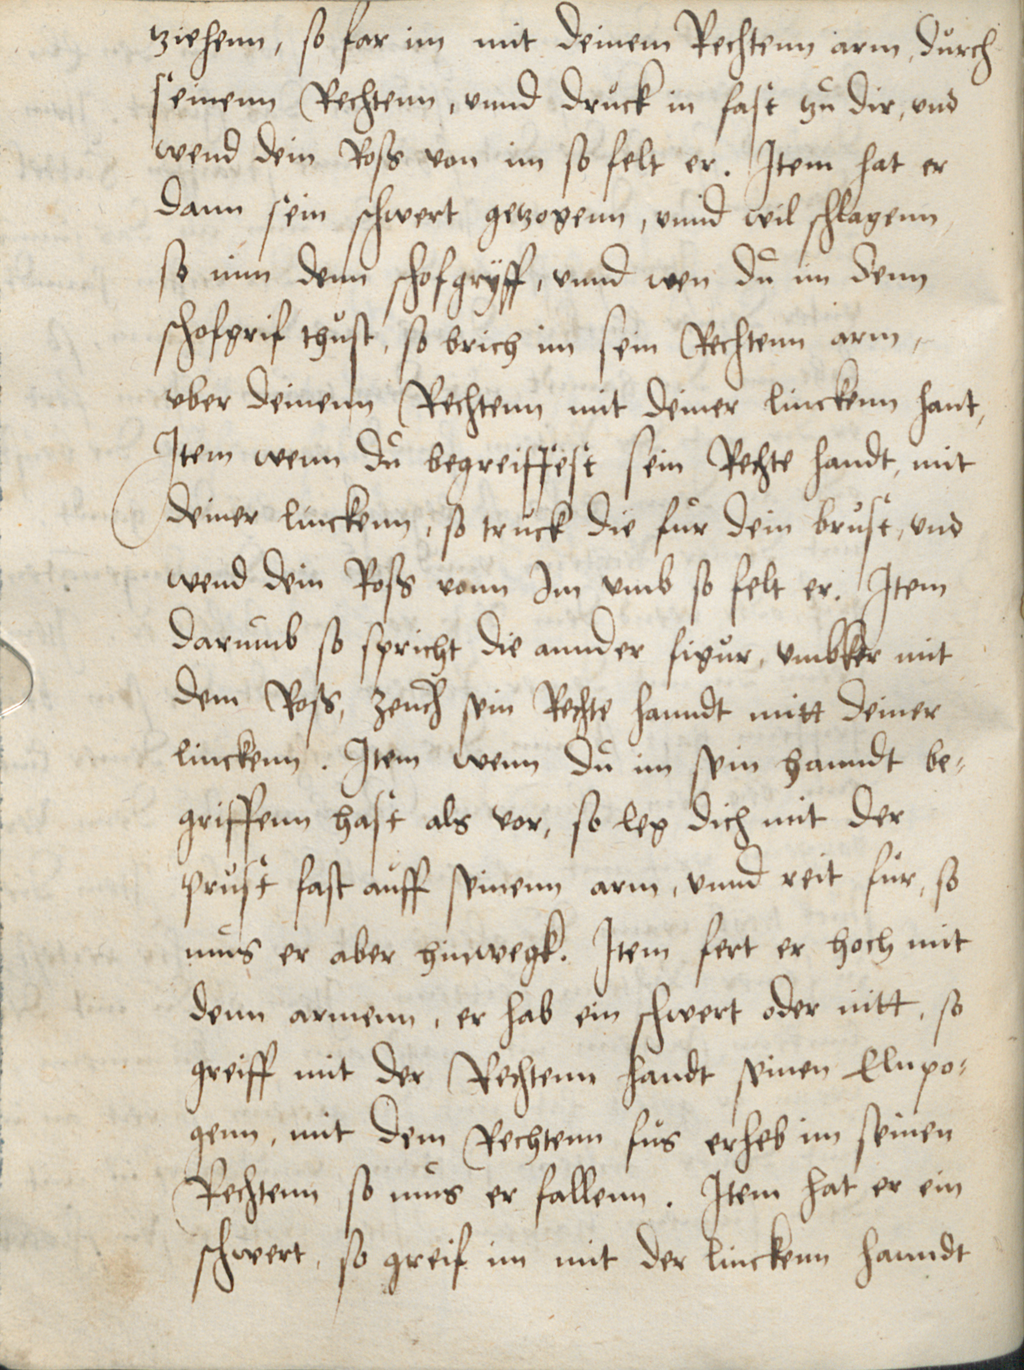 tziehenn, so far im mit deinem Rechtenn arm, durch
seinenn Rechtenn, vnnd drůck in fast tzů dir, vnd
wend dein Roß von im so felt er. Item hat er
dann sein schwert getzogenn, vnnd wil schlagenn
so nim denn schofgryff, vnnd wen dů im denn
schofgrif thůst, so brich im sein Rechtenn arm,
vber deinenn Rechtenn mit deiner linckenn hant,
Item wenn dů begreiffest sein Rechte handt, mit
deiner linckenn, so truck die für dein brůst, vnd
wend dein Roß vonn Im vmb so felt er. Item
darůmb so spricht die annder figůr, vmbker mit
dem Roß, zeuch sein Rechte hanndt mitt deiner
linckenn. Item wenn dů im sein hanndt be-
griffenn hast als vor, so leg dich mit der
průst fast aůff seinenn arm, vnnd reit für, so
můs er aber hinwegk. Item fert er hoch mit
denn armenn, er hab ein schwert oder nitt, so
greiff mit der Rechtenn handt seinen Elnpo-
genn, mit dem Rechtenn fůs erheb im seinen
Rechtenn so můs er fallenn. Item hat er ein
schwert, so greif im mit der linckenn hanndt